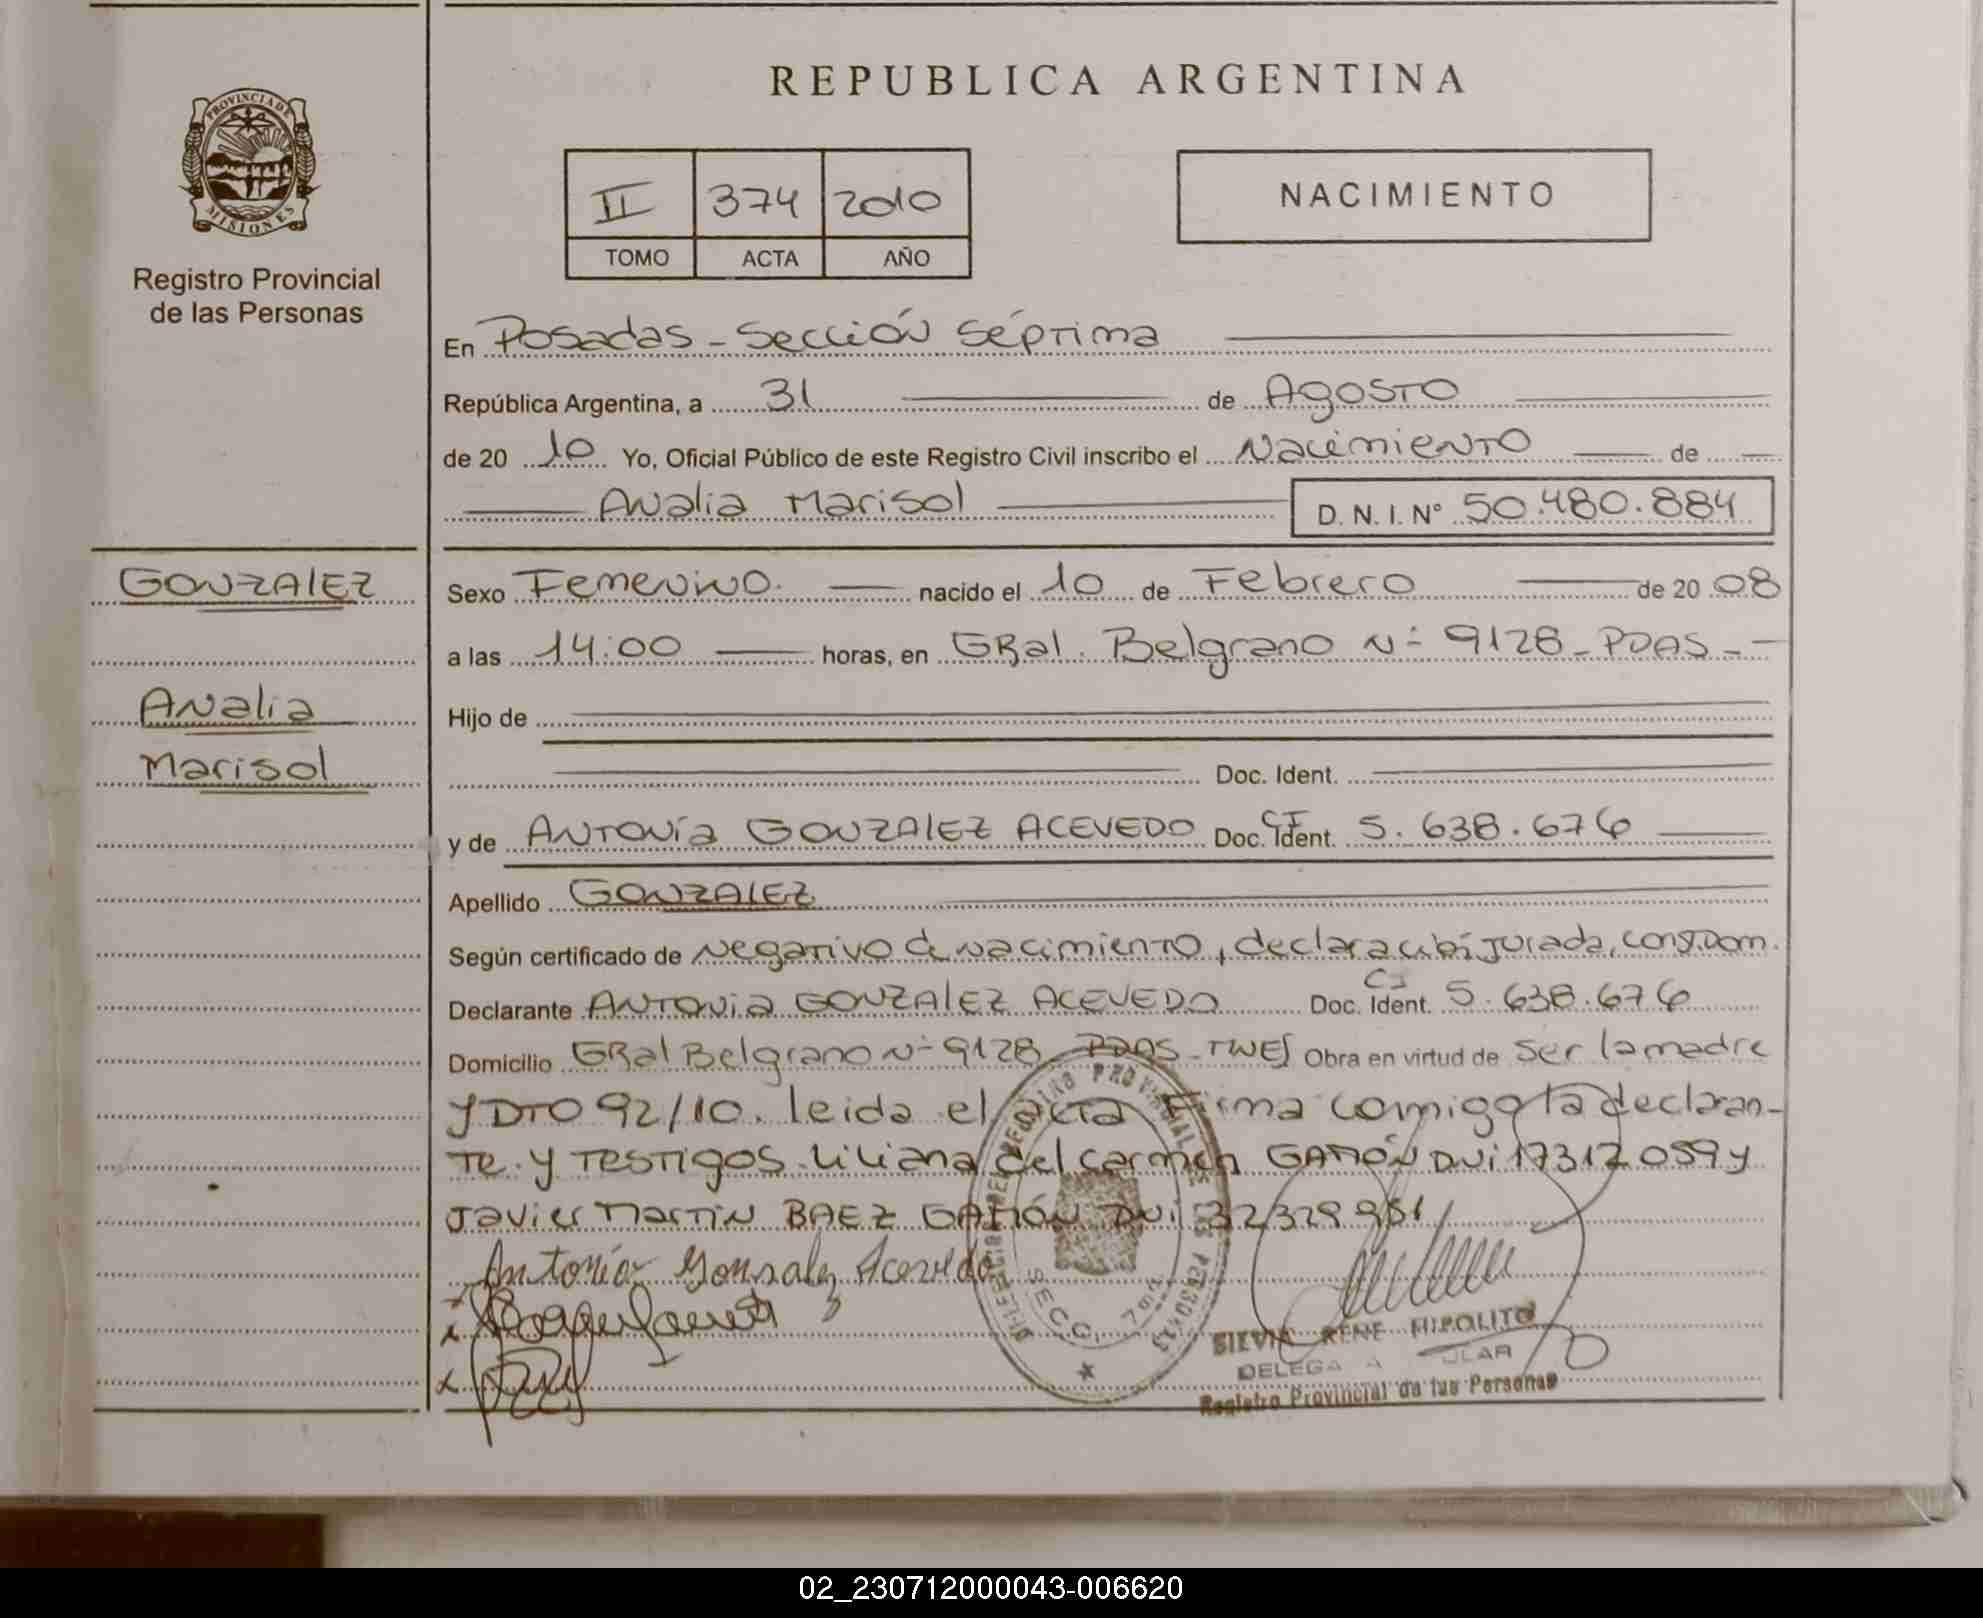 REPUBLICA ARGENTINA
PROVINCIA DE
MISIONES
Registro Provincial
de las Personas
II 374 2010
TOMO ACTA AÑO
NACIMIENTO
En Posadas - Sección Séptima
República Argentina, a 31 de Agosto
de 20 10 Yo, Oficial Público de este Registro Civil inscribo el Nacimiento de
Analia Marisol D. N. I. N° 50.480.884
GONZALEZ
Analia
Marisol
Sexo Femenino. nacido el 10 de Febrero de 20 08
a las 14:00 horas, en GRal. Belgrano N- 9128 - PDAS -
Hijo de
Doc. Ident.
y de ANTONIA GONZALEZ ACEVEDO Doc. Ident. CI 5.638.676
Apellido GONZALEZ
Según certificado de negativo de nacimiento, declaración jurada, const. Dom.
Declarante ANTONIA GONZALEZ ACEVEDO Doc. Ident. CI 5.638.676
Domicilio GRal Belgrano N- 9128 PDAS Obra en virtud de ser la madre
y DTO 92/10. leida el acta Firma comigo la declaran-
te y testigos Liliana del Carmen GAMÓN DNI 17312059 y
Javier Martin BAEZ GAMÓN DNI 32329951
Antonia Gonzalez Acevedo
SECC. 7
SILVIA RENE HIPOLITO
Registro Provincial de las Personas
02_230712000043-006620